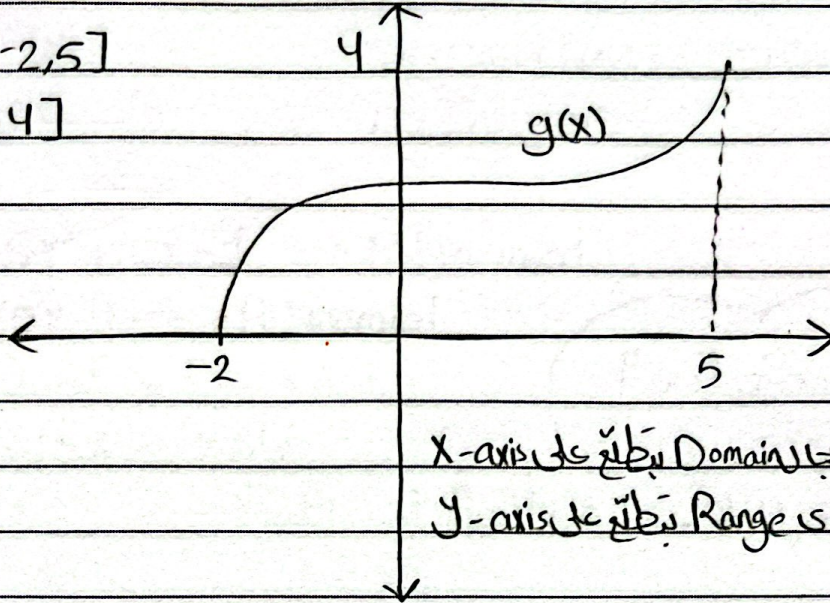 -2,5]
4]
4
g(x)
-2
5
Domain بتطلّع على X-axis
Range بتطلّع على y-axis